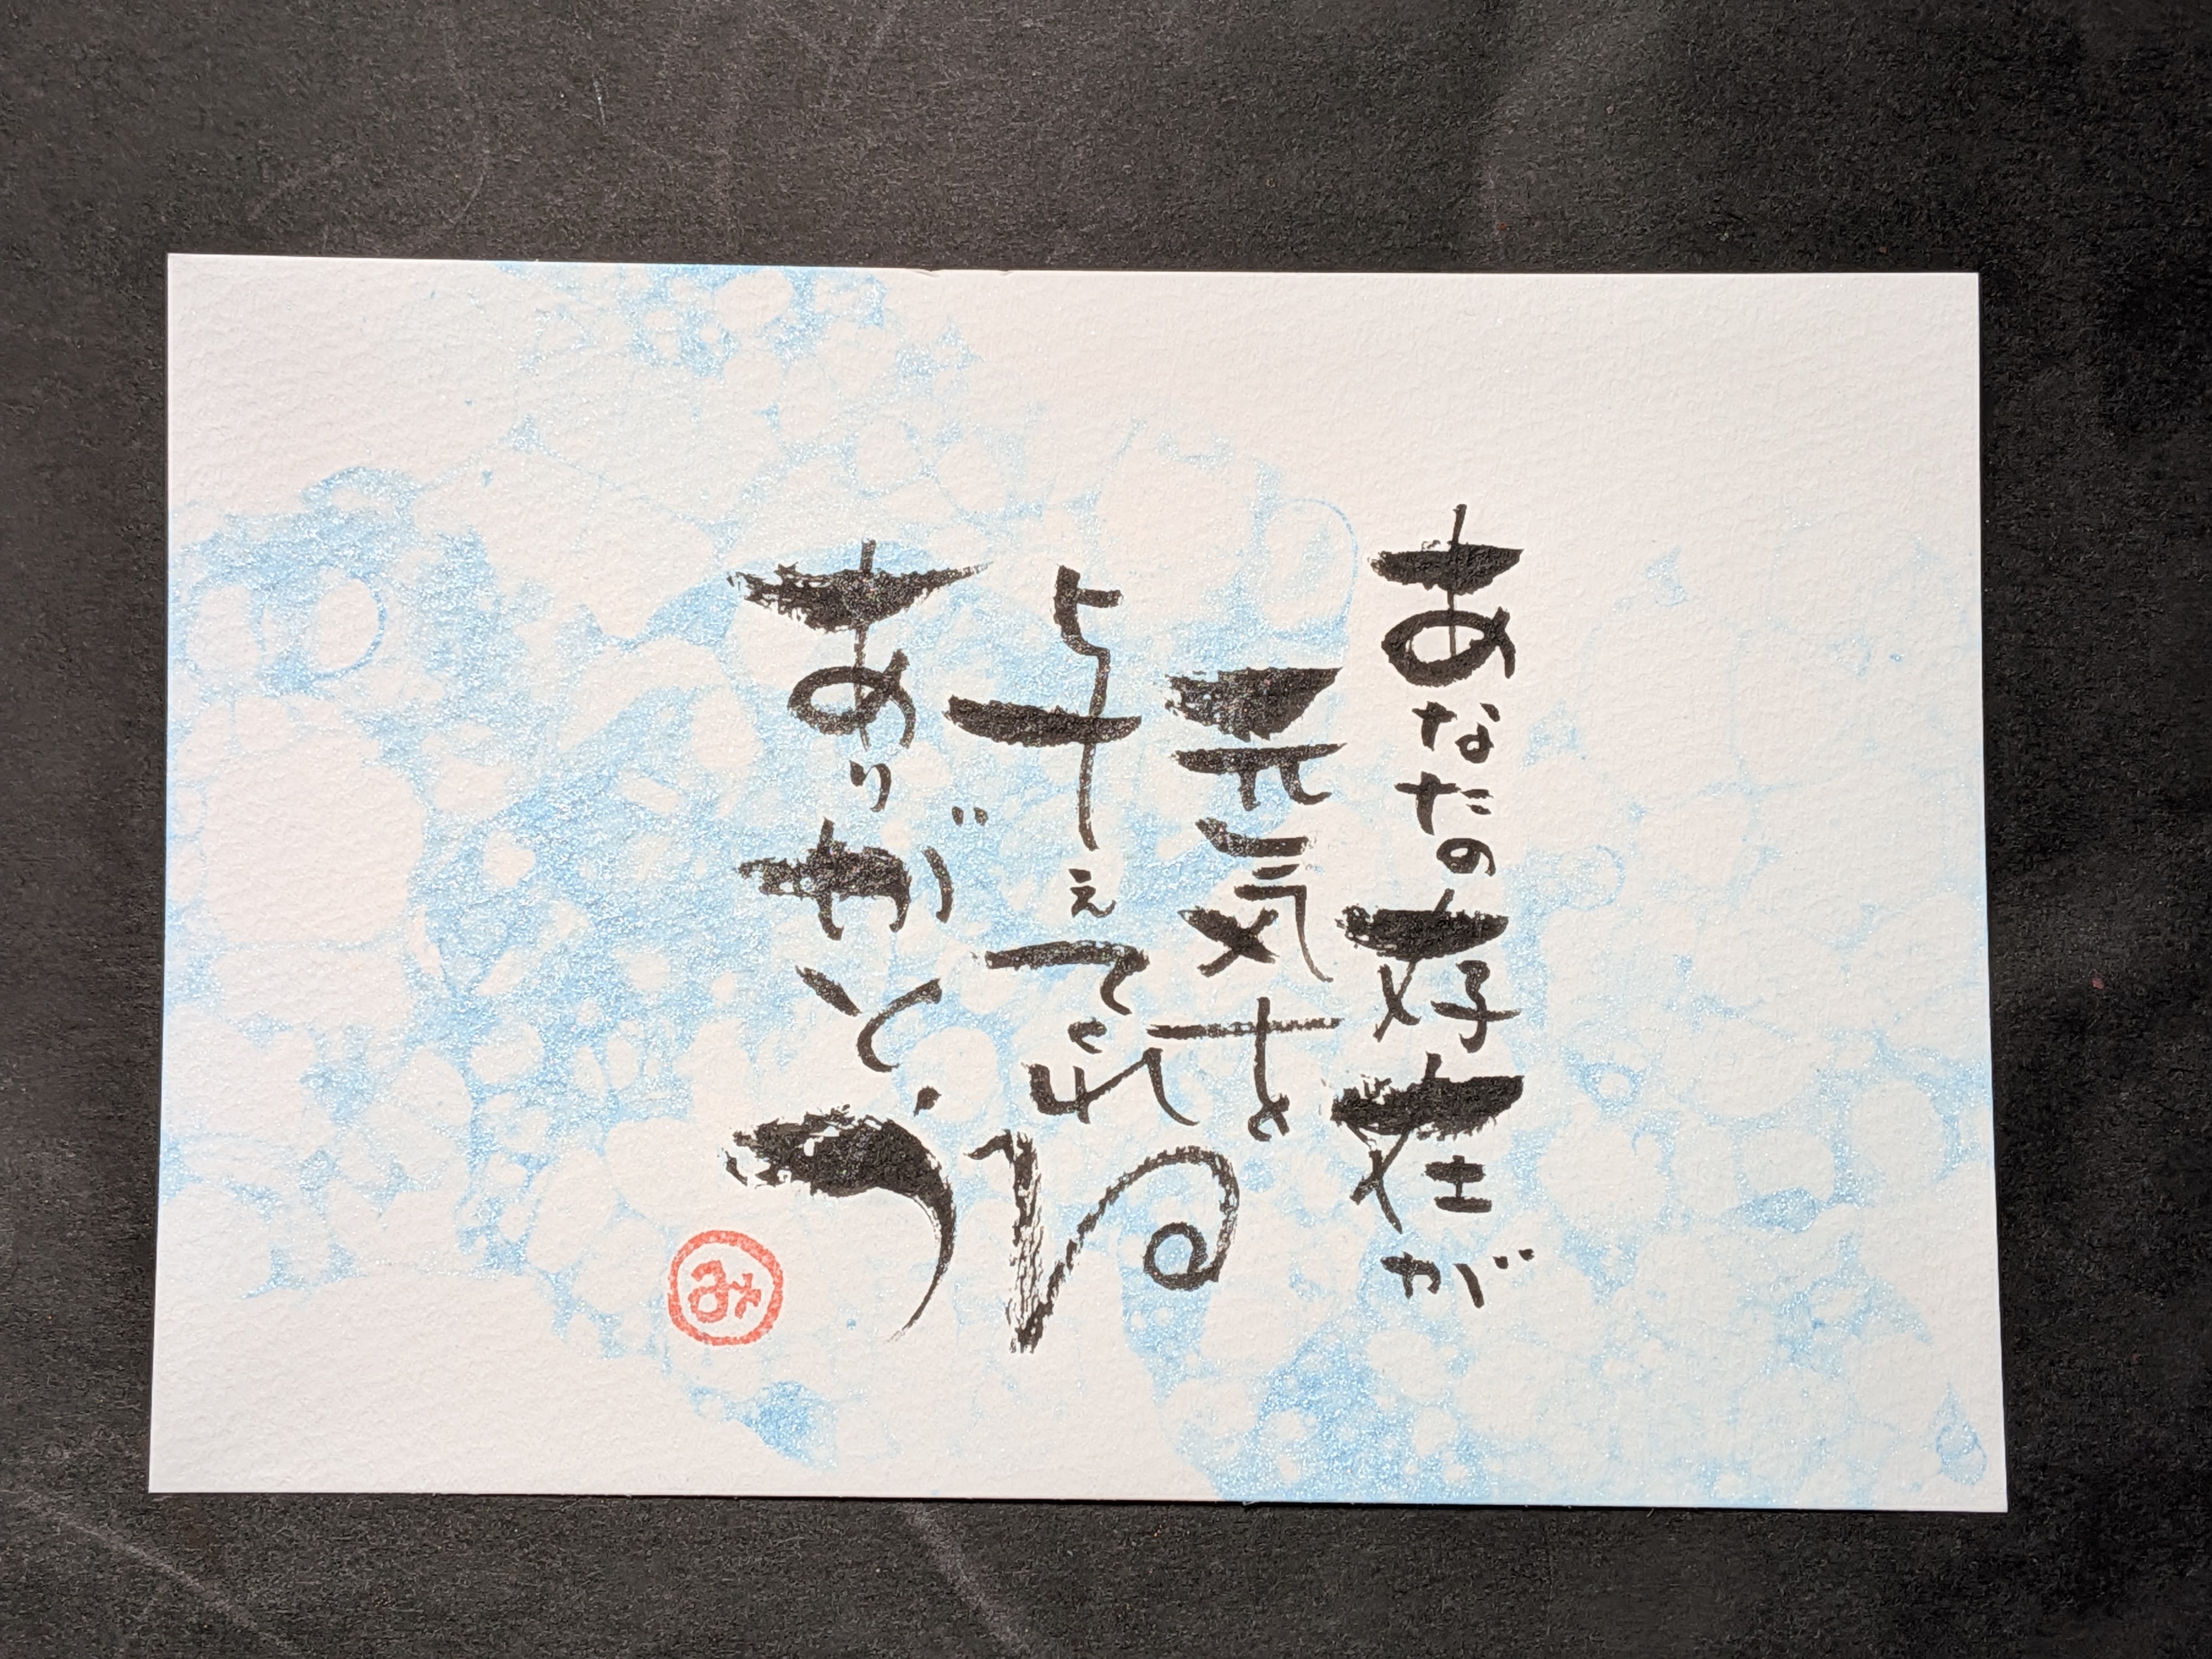 あなたの存在が
元気を
与えてくれる
ありがとう
み